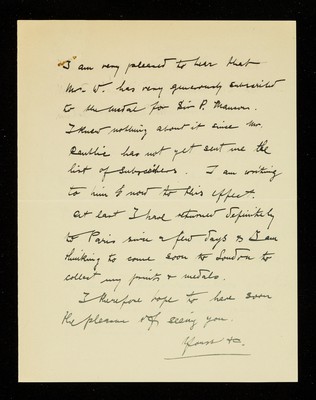 I am very pleased to hear that
Mr. W. has very generously subscribed
to the medal for Sir P. Manson.
I knew nothing about it since Mr.
has not yet sent me the
list of subscribers. I am writing
to him now to this effect.
At last I have returned definitely
to Paris since a few days & I am
thinking to come soon to London to
collect my prints & medals.
I therefore hope to have soon
the pleasure of seeing you.
Yours